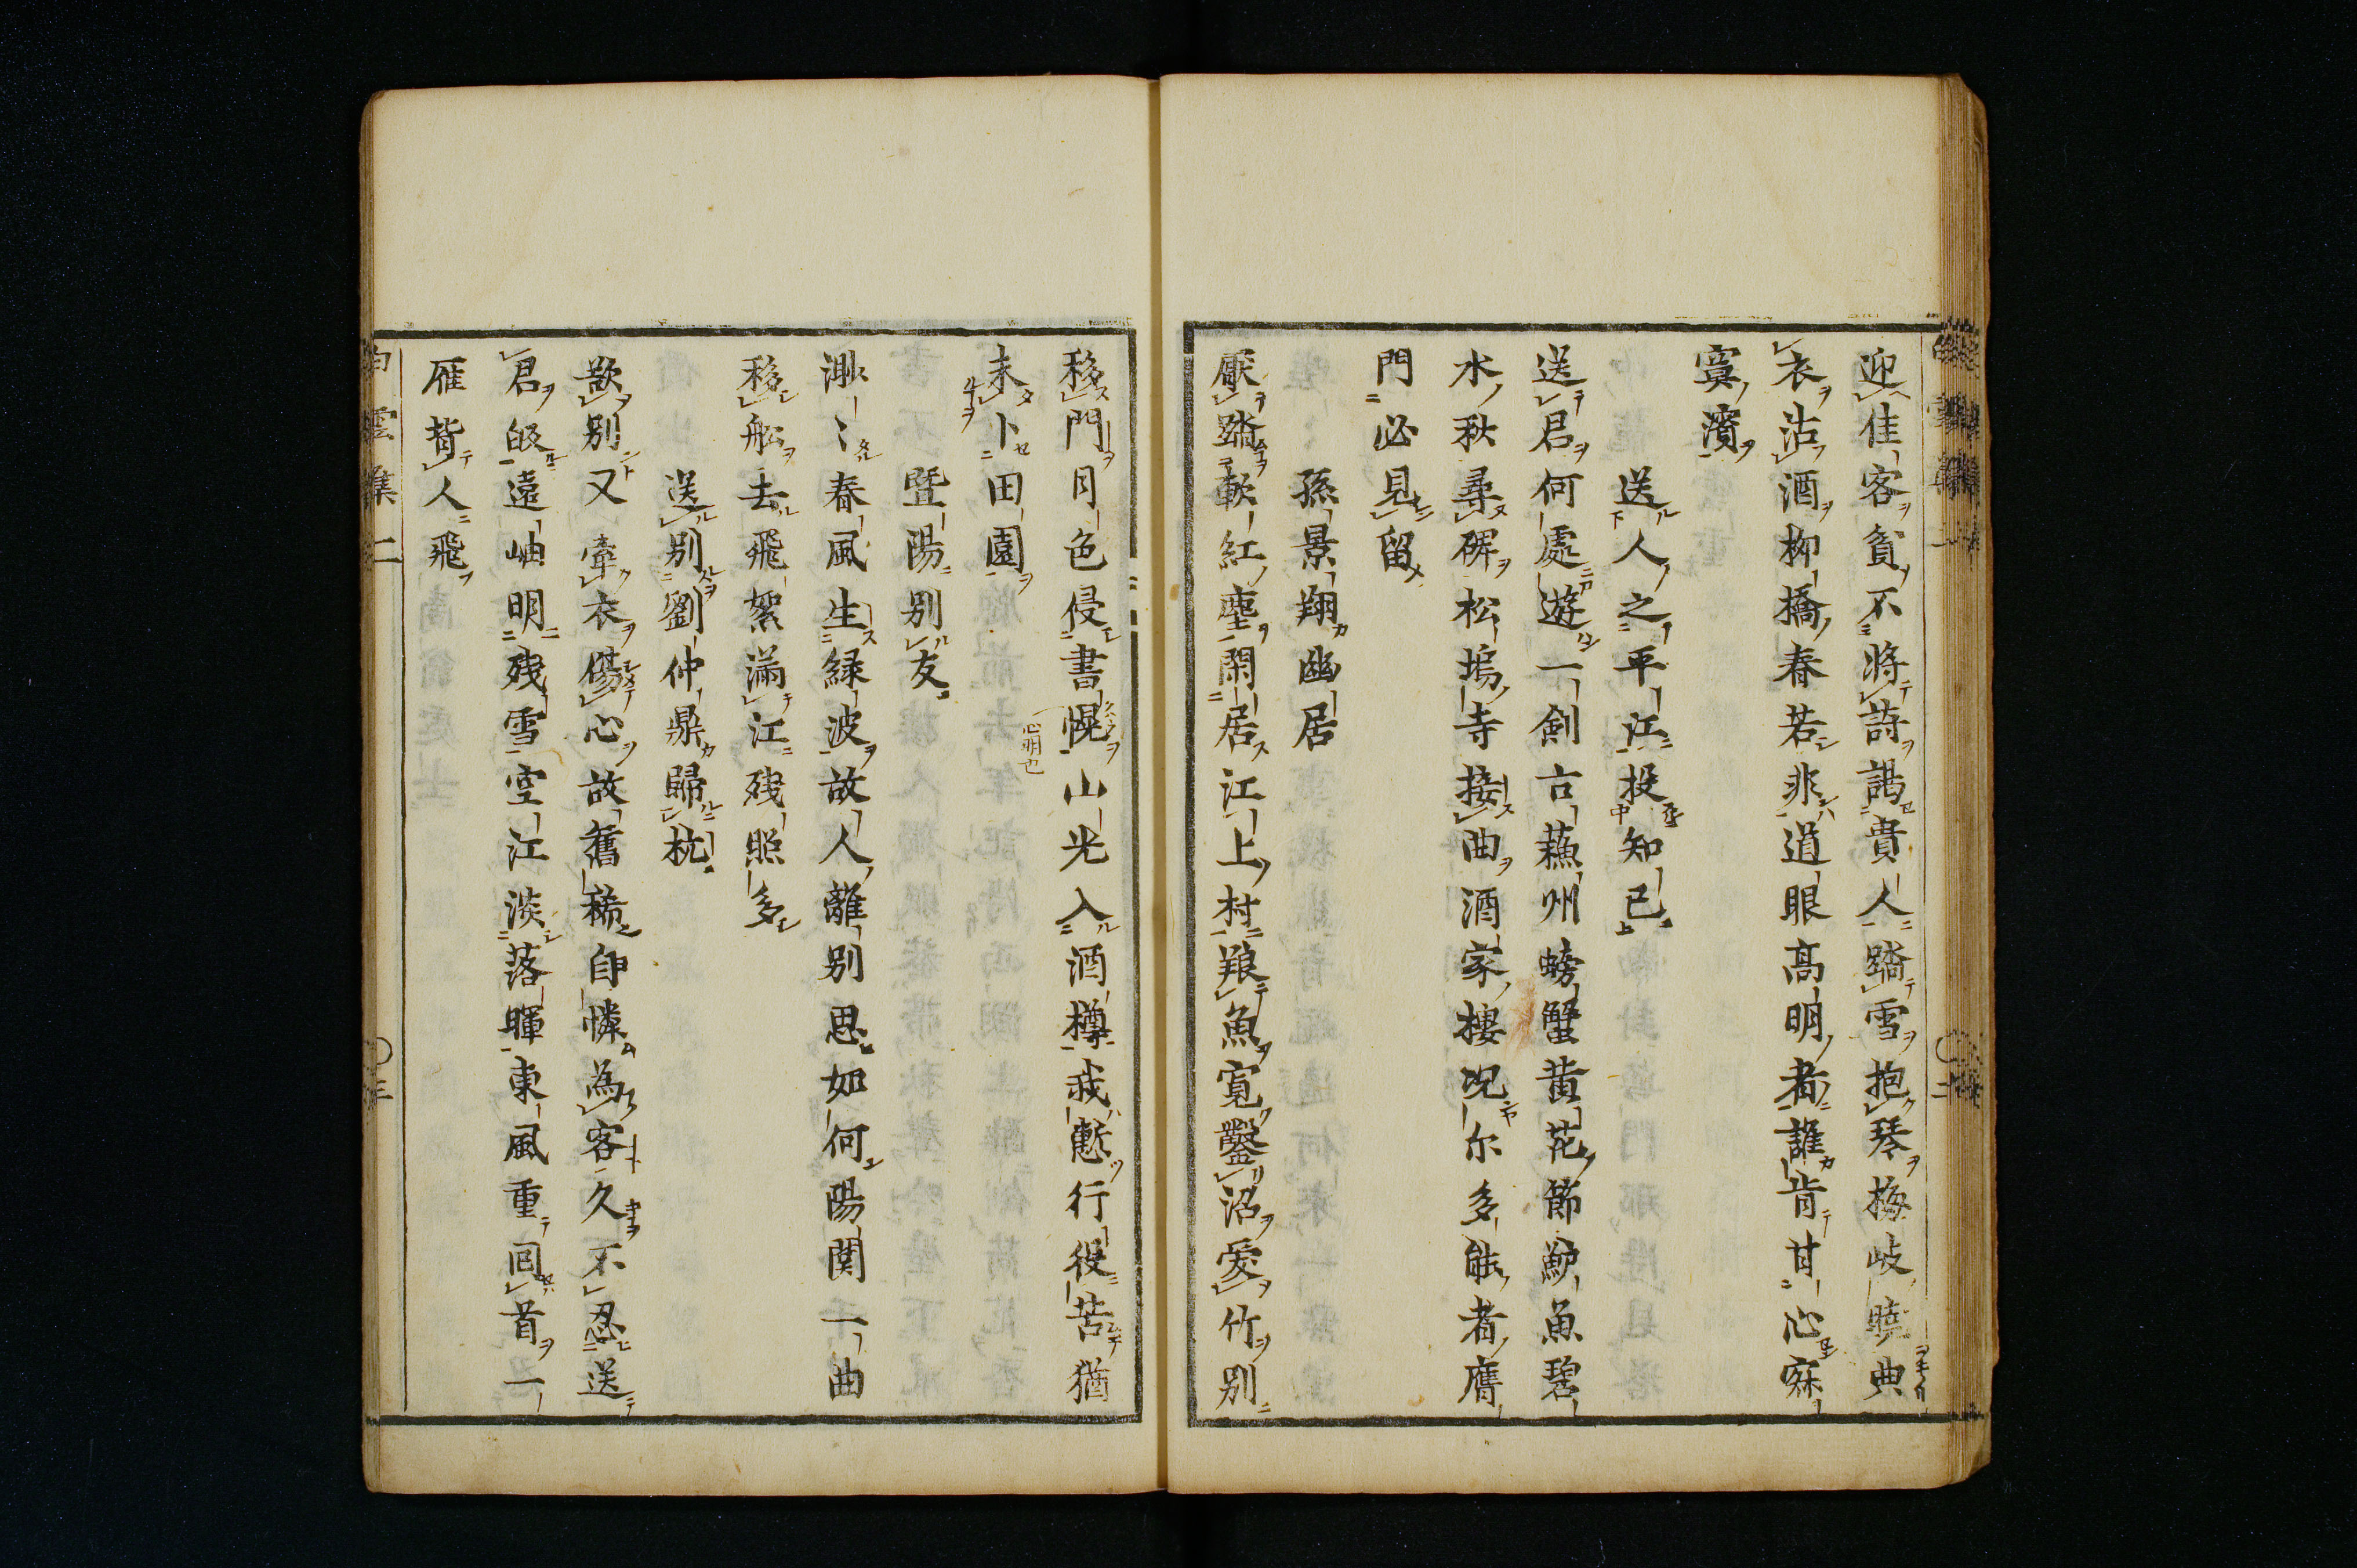 迎佳客貧不将詩謁貴人踏雪抱琴梅岐曉典
衣沽酒柳橋春若非道眼高明者誰肯甘心寐
寞濱
送人之平江投知已
送君何處遊一劍古蘓州螃蟹黄花節鱸魚碧
水秋尋碑松塢寺接曲酒家樓况尔多能者膺
門必見留
孫景翔幽居
厭踏軟紅塵閑居江上村粮魚寛鑿沼愛竹别
移門月色侵書幌山光入酒樽我慙行役苦猶
未卜田園
曁陽别友
渺〻春風生緑波故人離别思如何陽関一曲
移舩去飛絮滿江殘照多
送别劉仲鼎歸杭
歆别又牽衣傷心故舊稀自憐為客久不忍送
君皈遠岫明殘雪空江淡落暉東風重回首一
雁背人飛
白雲集二
三